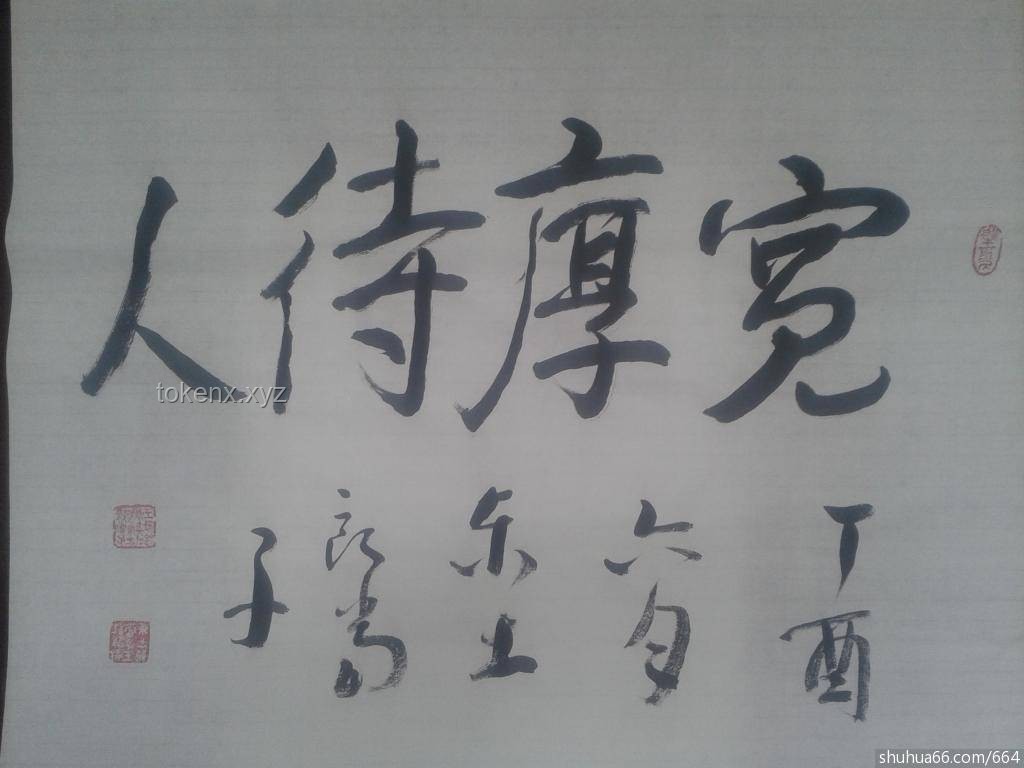 宽厚待人
丁酉
六月
乐土
子
tokenx.xyz
shuhua66.com/664